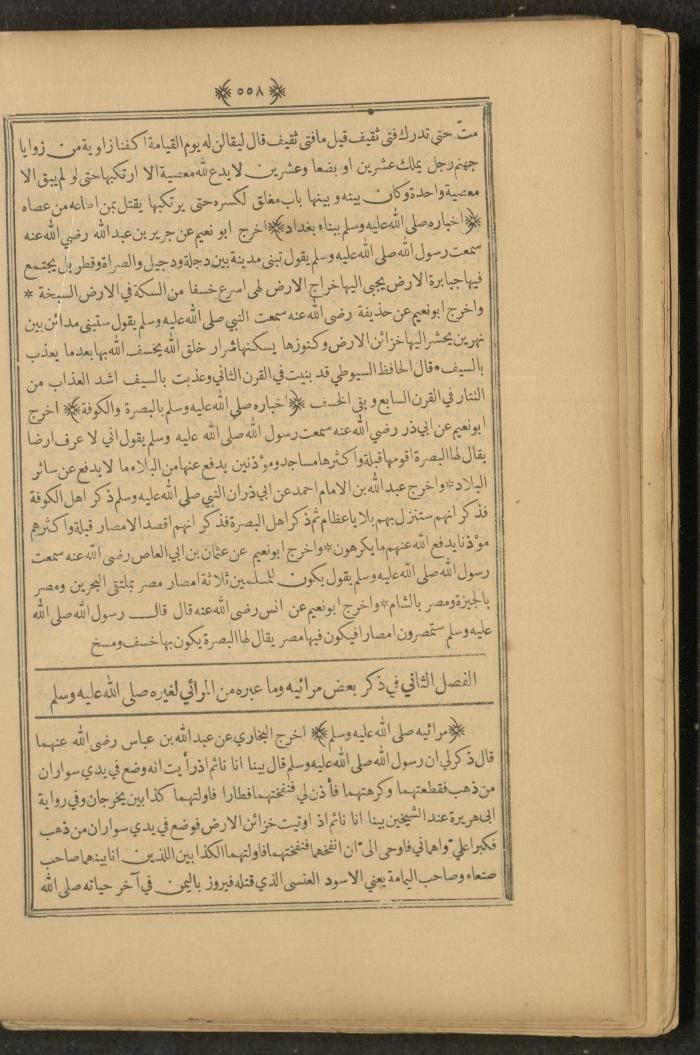 ﴿٥٥٨﴾
متّ حتى تدرك فتى ثقيف قيل ما فتى ثقيف قال ليقالن له يوم القيامة اكفنا زاوية من زوايا
جهنم رجل يملك عشرين او بضعا وعشرين لا يدع لله معصية الا ارتكبها حتى لو لم يبق الا
معصية واحدة وكان بينه وبينها باب مغلق لكسره حتى يرتكبها يقتل بمن اطاعه من عصاه
﴿اخباره صلى الله عليه وسلم ببناء بغداد﴾ اخرج ابو نعيم عن جرير بن عبد الله رضي الله عنه
سمعت رسول الله صلى الله عليه وسلم يقول تبنى مدينة بين دجلة ودجيل والصراة وقطربل يجتمع
فيها جبابرة الارض يجبى اليها خراج الارض لهى اسرع خسفا من السكة في الارض السبخة *
واخرج ابو نعيم عن حذيفة رضى الله عنه سمعت النبي صلى الله عليه وسلم يقول ستبنى مدائن بين
نهرين يحشر اليها خزائن الارض وكنوزها يسكنها شرار خلق الله يخسف الله بها بعد ما يعذب
بالسيف * قال الحافظ السيوطي قد بنيت في القرن الثاني وعذبت بالسيف اشد العذاب من
التتار في القرن السابع وبقى الخسف ﴿اخباره صلى الله عليه وسلم بالبصرة والكوفة﴾ اخرج
ابو نعيم عن ابي ذر رضي الله عنه سمعت رسول الله صلى الله عليه وسلم يقول اني لا عرف ارضا
يقال لها البصرة اقومها قبلة واكثرها مساجد ومؤذنين يدفع عنها من البلاء ما لا يدفع عن سائر
البلاد * واخرج عبد الله بن الامام احمد عن ابي ذر ان النبي صلى الله عليه وسلم ذكر اهل الكوفة
فذكر انهم ستنزل بهم بلايا عظام ثم ذكر اهل البصرة فذكر انهم اقصد الامصار قبلة واكثرهم
مؤذنا يدفع الله عنهم ما يكرهون * واخرج ابو نعيم عن عثمان بن ابي العاص رضى الله عنه سمعت
رسول الله صلى الله عليه وسلم يقول يكون للمسلمين ثلاثة امصار مصر بملتقى البحرين ومصر
بالجيزة ومصر بالشام * واخرج ابو نعيم عن انس رضى الله عنه قال قال رسول الله صلى الله
عليه وسلم ستمصرون امصارا فيكون فيها مصر يقال لها البصرة يكون بها خسف ومسخ
الفصل الثاني في ذكر بعض مرائيه وما عبره من المرائي لغيره صلى الله عليه وسلم
﴿مرائيه صلى الله عليه وسلم﴾ اخرج البخاري عن عبد الله بن عباس رضى الله عنهما
قال ذكر لي ان رسول الله صلى الله عليه وسلم قال بينا انا نائم اذ رأيت انه وضع في يدي سواران
من ذهب فقطعتهما وكرهتهما فأذن لي فنفختهما فطارا فاولتهما كذابين يخرجان وفي رواية
ابى هريرة عند الشيخين بينا انا نائم اذ اوتيت خزائن الارض فوضع في يدي سواران من ذهب
فكبرا علي واهماني فاوحى الى ان انفخهما فنفختهما فاولتهما الكذابين اللذين انا بينهما صاحب
صنعاء وصاحب اليمامة يعني الاسود العنسى الذي قتله فيروز باليمن في آخر حياته صلى الله